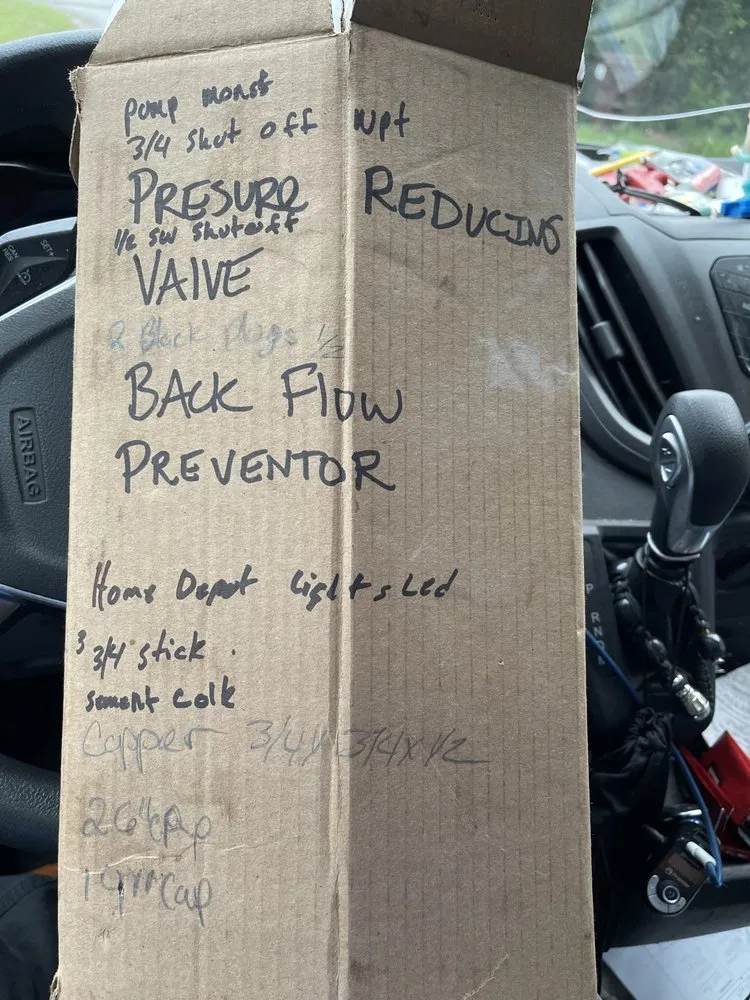 pump monst
3/4 shut off npt
PRESURE REDUCING
1/2 sw shutoff
VALVE
2 Black plugs 1/2
BACK FLOW
PREVENTOR
Home Depot Lights Led
3 3/4 stick .
sement Colk
Copper 3/4x 3/4x1/2
Cap
Cap
AIRBAG
SET+
CAN
RES
P
R
N
D